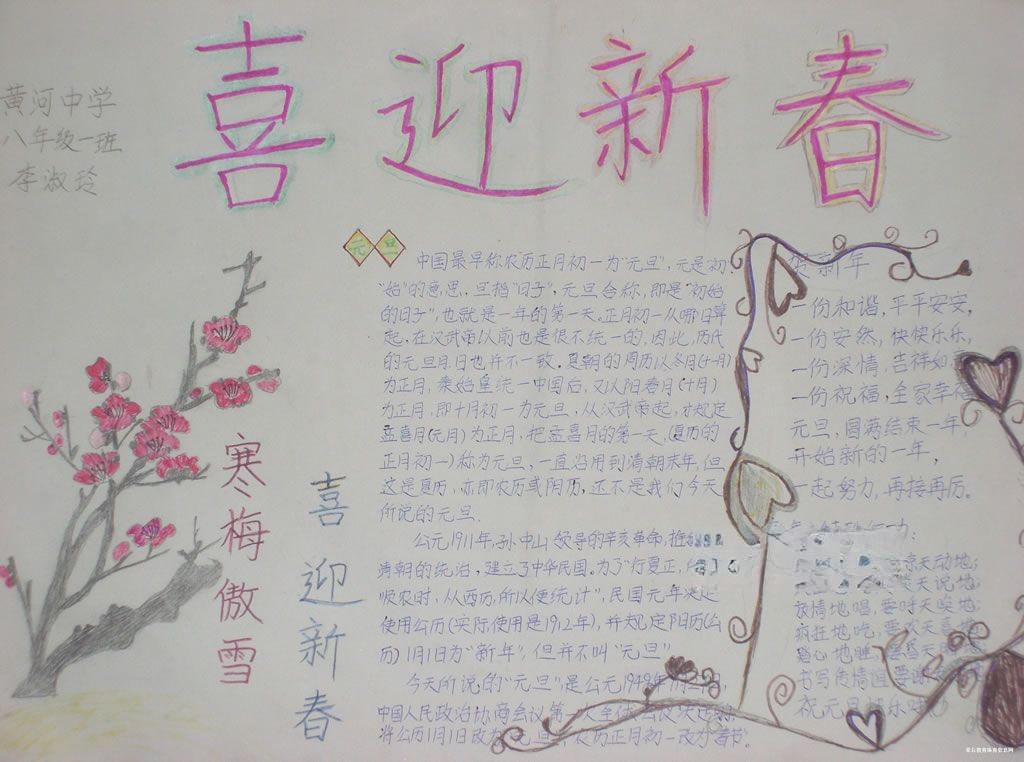 喜迎新春
黄河中学
八年级一班
李淑玲
元旦
中国最早称农历正月初一为"元旦",元是"初"
"始"的意思,旦指"日子",元旦合称,即是"初始
的日子",也就是一年的第一天。正月初一从哪日算
起,在汉武帝以前也是很不统一的,因此,历代
的元旦月、日也并不一致。夏朝的周历以冬月(十一月)
为正月,秦始皇统一中国后,又以阳春月(十月)
为正月,即十月初一为元旦,从汉武帝起,才规定
孟喜月(元月)为正月,把孟喜月的第一天(夏历的
正月初一)称为元旦,一直沿用到清朝末年,但
这是夏历,亦即农历或阴历,还不是我们今天
所说的元旦.
公元1911年,孙中山领导的辛亥革命,推
清朝的统治,建立了中华民国。为了"行夏正,
顺农时,从西历,所以便统计",民国元年决定
使用公历(实际使用是1912年),并规定阳历(公
历)1月1日为"新年",但并不叫"元旦"
今天所说的"元旦",是公元1949年
中国人民政治协商会议第一
将公历1月1日改为"元旦",农历正月初一改为"春节"。
贺新年
一份和谐,平平安安,
一份安然,快快乐乐,
一份深情,吉祥如
一份祝福,全家幸福
元旦,圆满结束一年,
开始新的一年,
一起努力,再接再厉。
京天动地;
天说地;
地唱,要呼天唤地;
疯狂地吃,要欢天喜地
地睡,
书写传情谊,要谢
祝元旦快乐
寒梅傲雪
喜迎新春